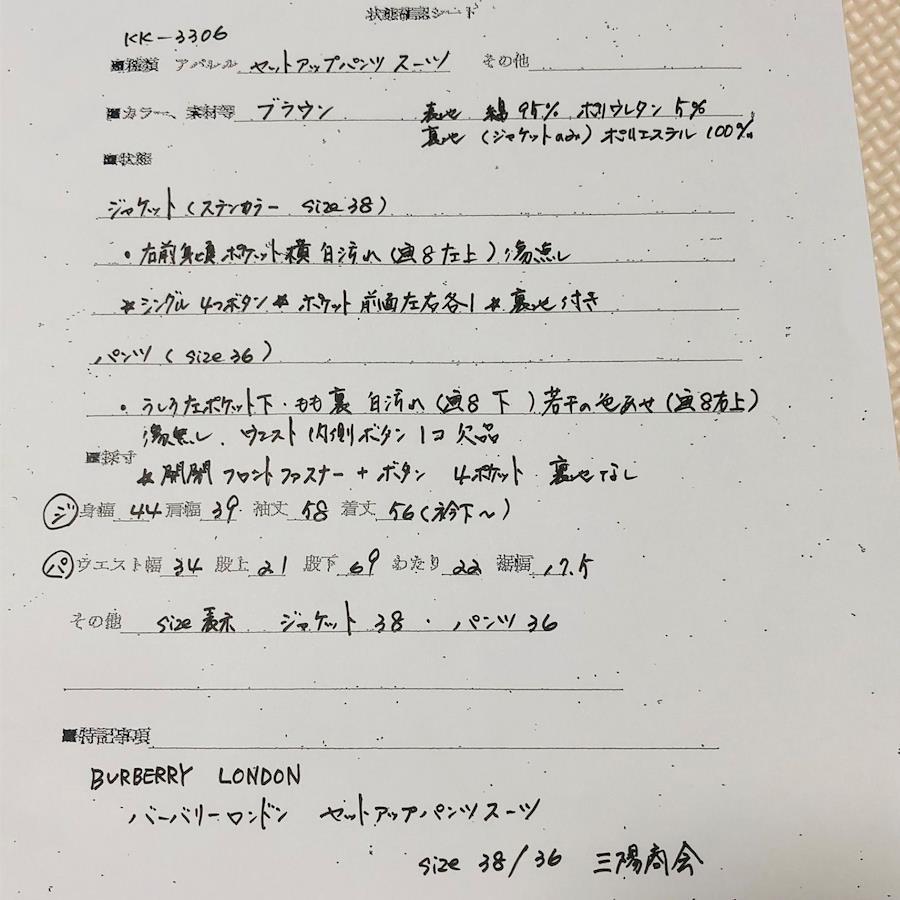 状態確認シート
KK-3306
■種類 アパレル セットアップパンツ スーツ その他
■カラー、素材等 ブラウン 表地 綿95% ポリウレタン5%
裏地 (ジャケットのみ) ポリエステル 100%
■状態
ジャケット (ステンカラー size 38)
・右前身頃ポケット横 白汚れ (画8左上) 傷無し
*シングル 4つボタン * ポケット 前面左右各1 * 裏地付き
パンツ (size 36)
・うしろ左ポケット下・もも裏 白汚れ (画8 下) 若干の色あせ (画8右上)
傷無し、ウエスト内側ボタン1コ欠品
■採寸
*開閉 フロントファスナー + ボタン 4ポケット 裏地なし
ジ 身幅 44 肩幅 39 袖丈 58 着丈 56 (衿下~)
パ ウエスト幅 34 股上 21 股下 69 わたり 22 裾幅 17.5
その他 size表示 ジャケット 38 ・ パンツ 36
■特記事項
BURBERRY LONDON
バーバリーロンドン セットアップパンツスーツ
size 38/36 三陽商会